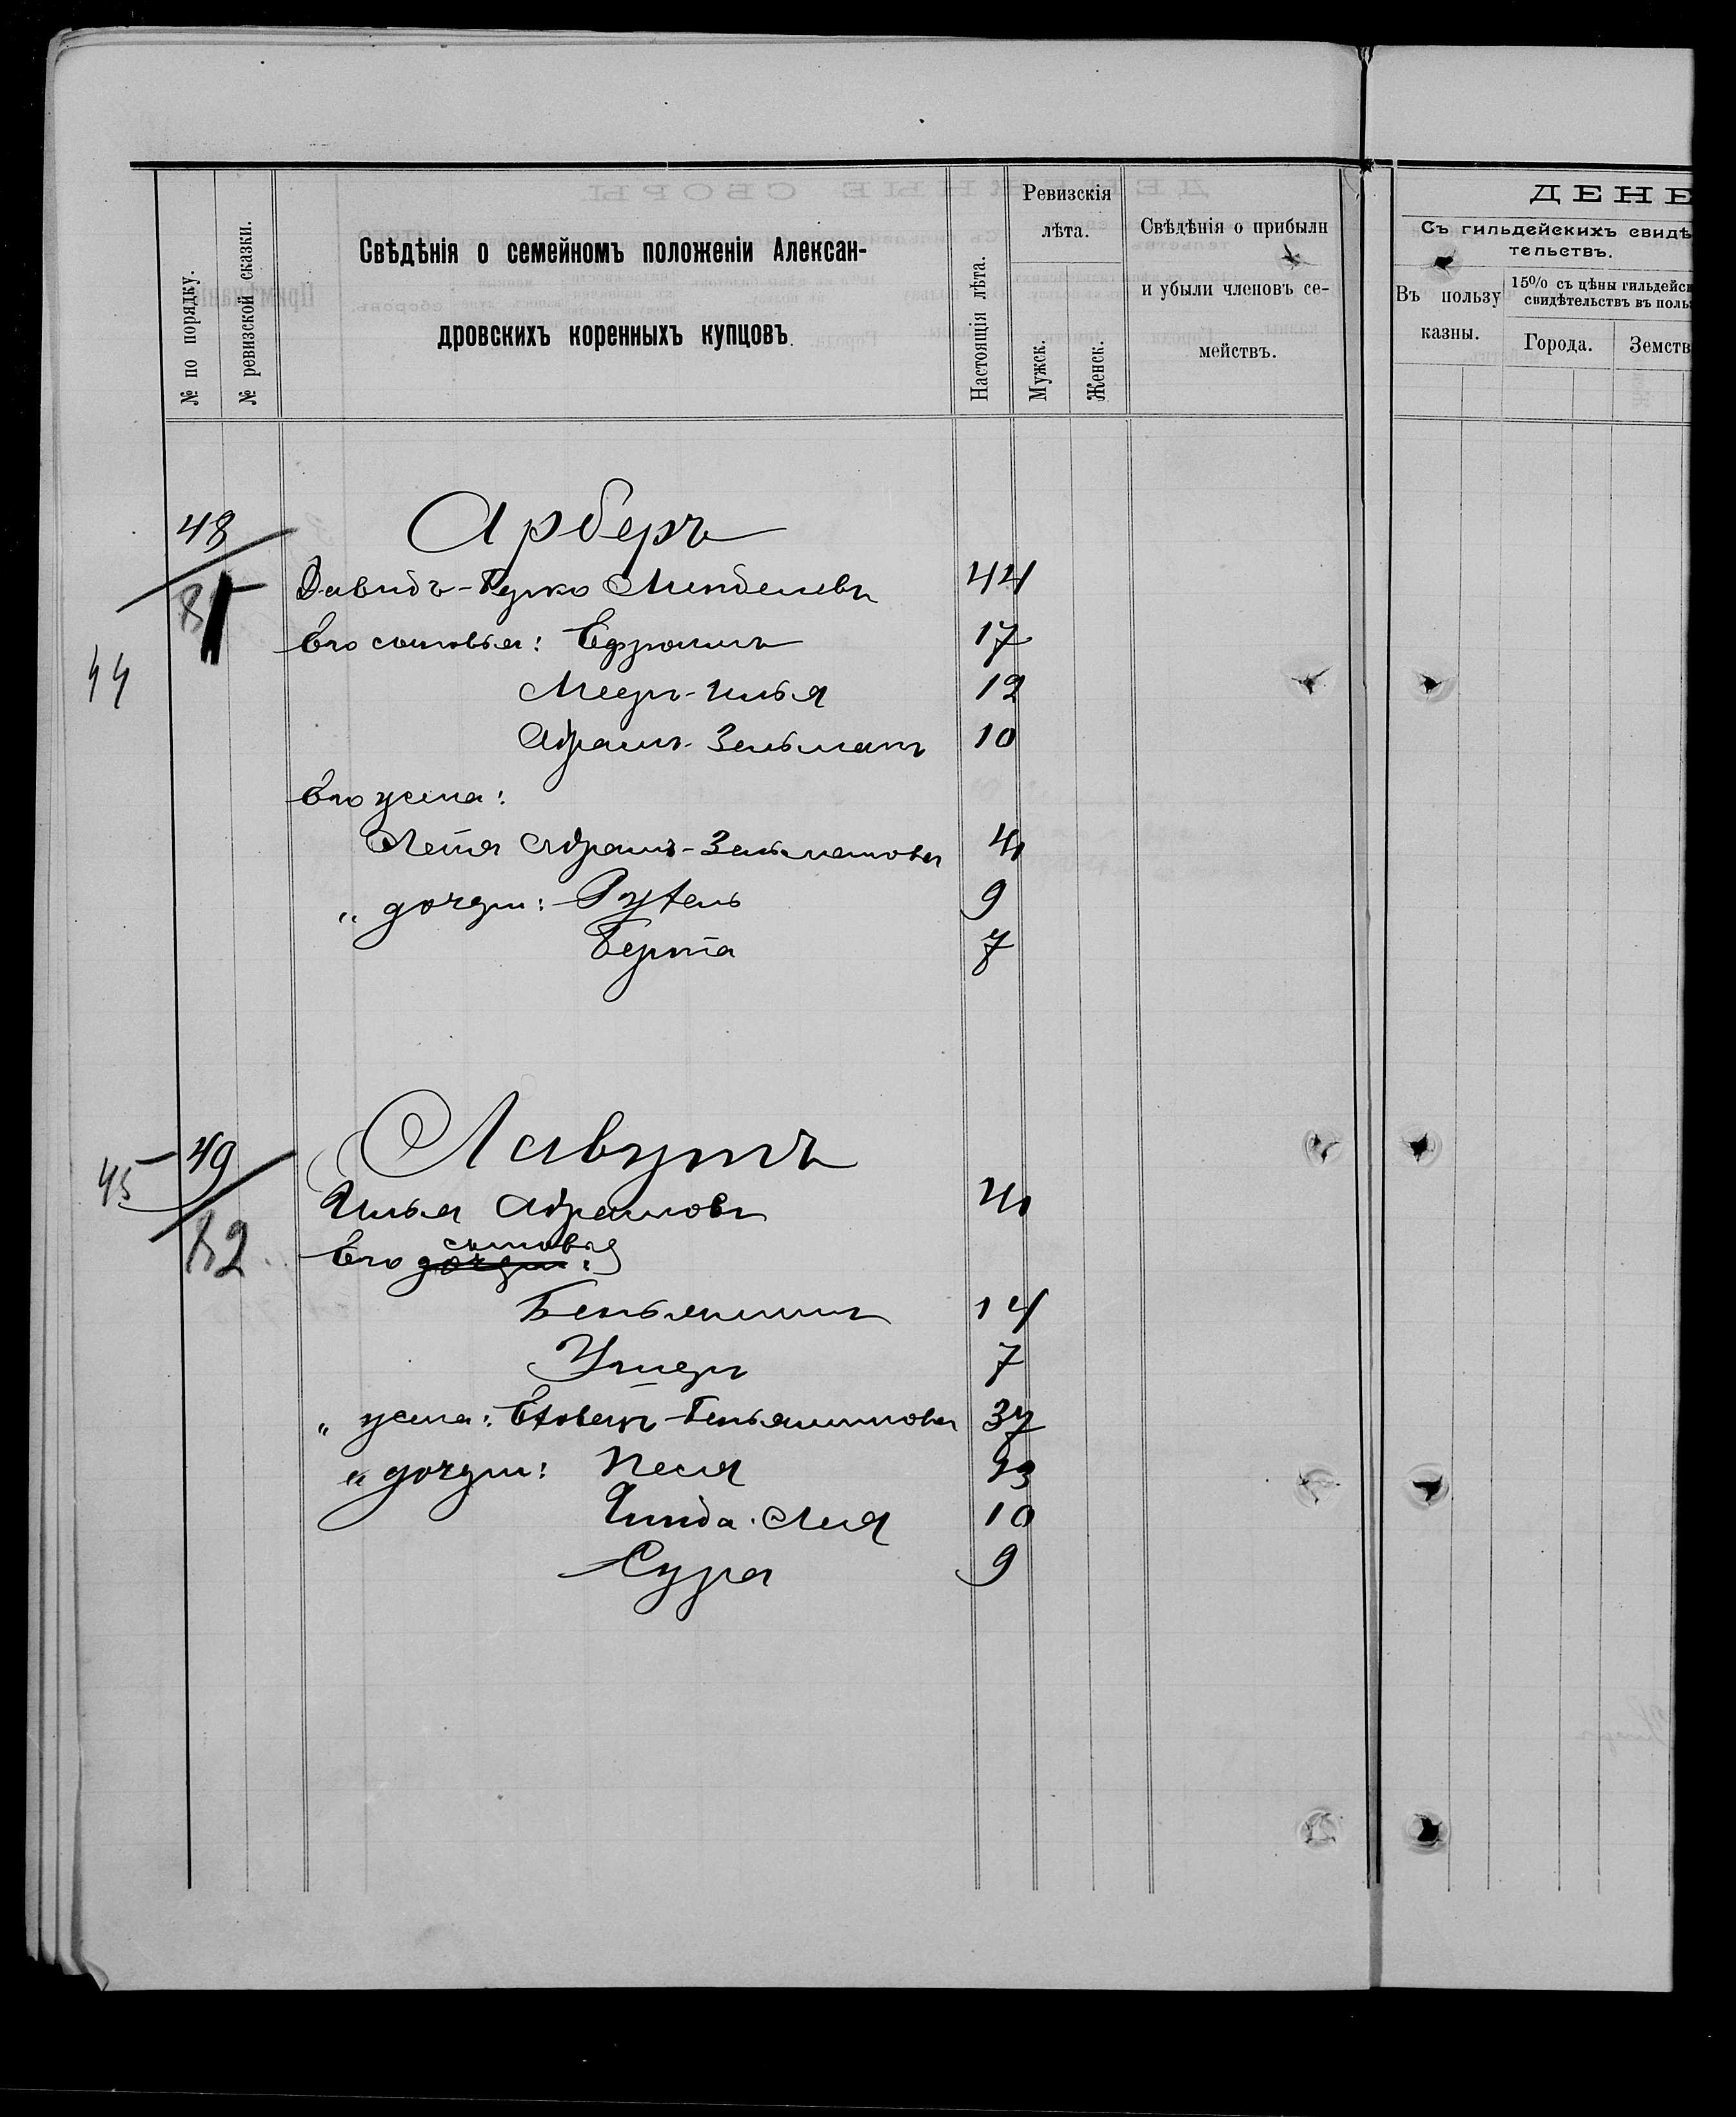 № по порядку.
№ ревизской сказки.
Свѣдѣнія о семейномъ положеніи Алексан-
дровскихъ коренныхъ купцовъ.
Настоящія лѣта.
Ревизскія
лѣта.
Мужск.
Женск.
Свѣдѣнія о прибыли
и убыли членовъ се-
мействъ.
ДЕНЕ
Съ гильдейскихъ свидѣ
тельствъ.
Въ пользу
казны.
15% съ цѣны гильдейск
свидѣтельствъ въ польз
Города.
Земств
48
Арберъ
Давидъ-Гецко Менделевъ 44
44
Его сыновья: Ефроимъ 17
Мееръ-Илья 12
Абрамъ-Зельманъ 10
Его жена:
Абрамъ-Зельманова 41
„ дочери: Рухель 9
Берта 7
49
45
Лавутъ
Илья Абрамовъ 41
82
сыновья
Его дочери:
Беньяминъ 14
Ушеръ 7
„ жена: Беньяминова 37
„ дочери: Песя
Линда-Лея 10
Сура 9